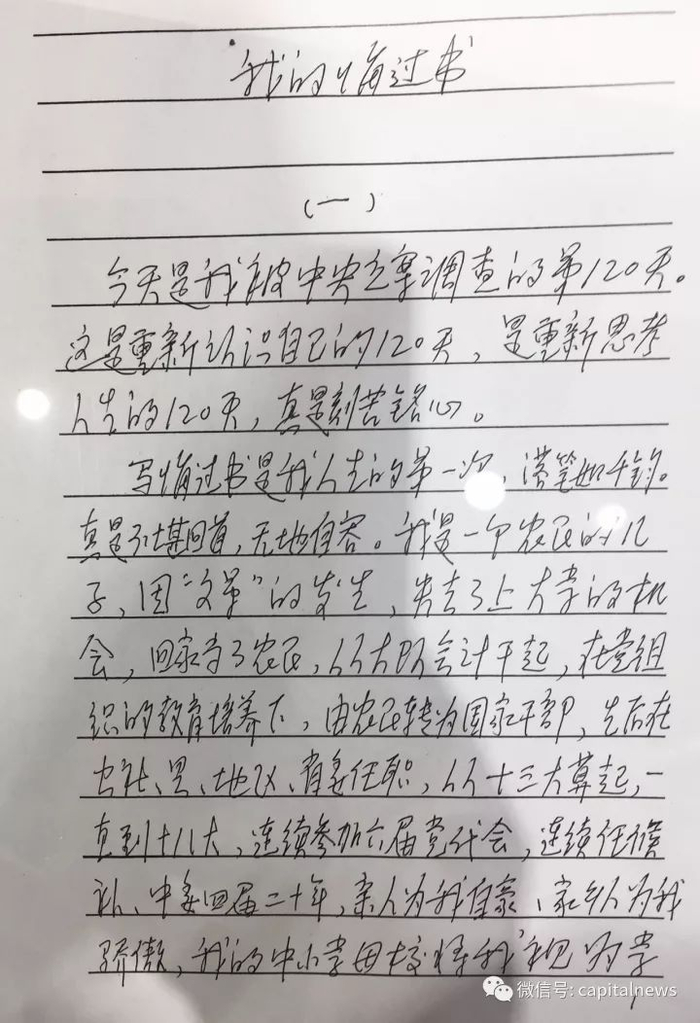 我的悔过书
（一）
今天是我被中央立案调查的第120天。
这是重新认识自己的120天，是重新思考
人生的120天，真是刻苦铭心。
写悔过书是我人生的第一次，落笔如千钧。
真是不堪回首，无地自容。我是一个农民的儿
子，因“文革”的发生，失去了上大学的机
会，回家当了农民，从大队会计干起，在党组
织的教育培养下，由农民转为国家干部，先后在
公社、县、地区、省委任职，从十三大算起，一
直到十八大，连续参加六届党代会，连续任候
补、中委四届二十年，亲人为我自豪、家乡人为我
骄傲，我的中小学母校将我视为学
微信号: capitalnews